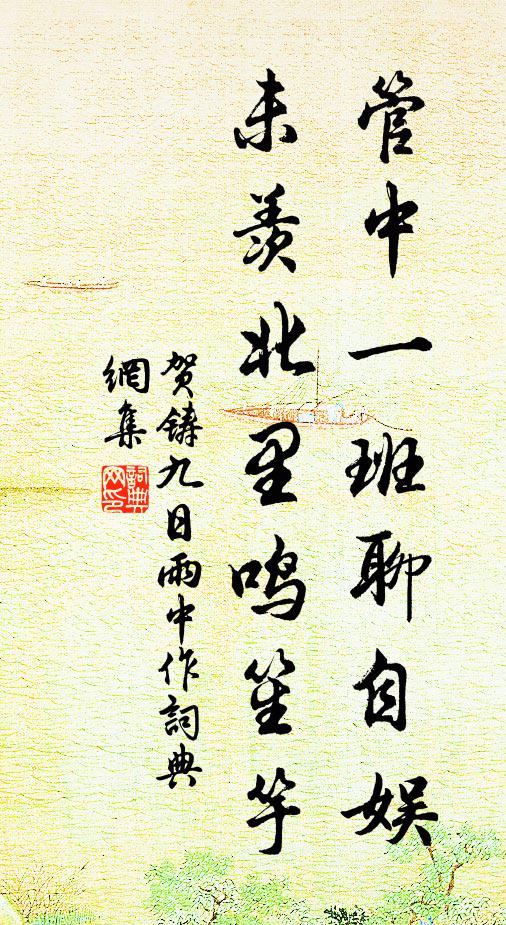 管中一班聊自娱
未羡北里鸣笙竽
贺铸九日雨中作词典
網集
詞典
网印